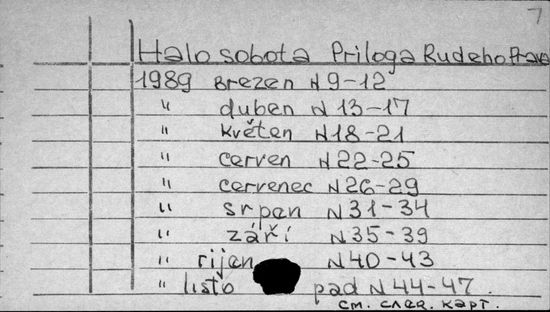 7
Halo sobota Priloga Rudeho Prava
1989 Brezen N 9-12
" duben N 13-17
" květen N 18-21
" cerven N 22-25
" cervenec N 26-29
" srpen N 31-34
" září N 35-39
" rijen N 40-43
" listo pad N 44-47.
см. след. карт.